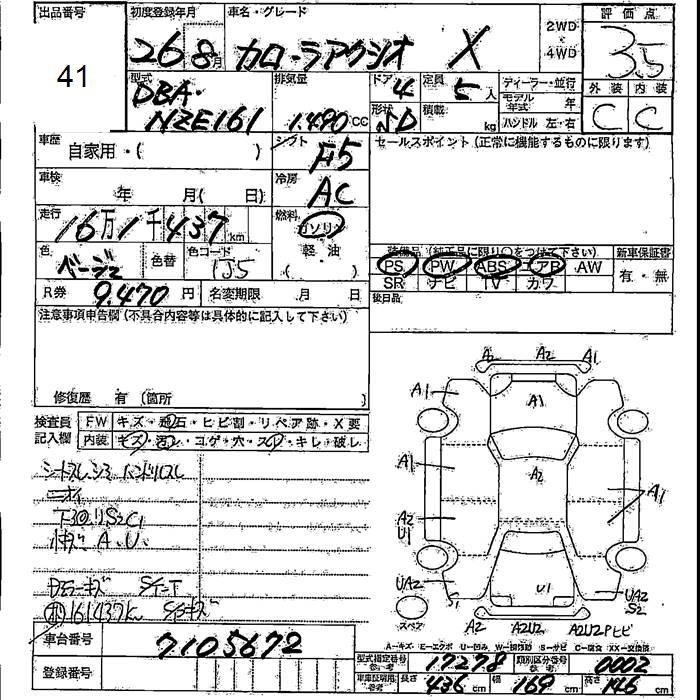 出品番号
41
初度登録年月
26年8月
車名・グレード
カローラアクシオ X
2WD
4WD
評価点
3.5
外装 内装
C C
型式
DBA-
NZE161
排気量
1.490cc
ドア 4
形状 SD
定員 5人
積載 kg
ディーラー・並行
モデル年式 年
ハンドル 左・右
車歴
自家用・( )
シフト F5
セールスポイント (正常に機能するものに限ります)
車検
年 月( 日)
冷房 AC
走行
16万1千437km
燃料
ガソリン
軽油
( )
色 ベージュ
色替
色コード
装備品 (純正品に限り○をつけて下さい)
PS PW ABS エアB AW
SR ナビ TV カワ
新車保証書
有・無
R券 9.470円
名変期限 月 日
後日品
注意事項申告欄 (不具合内容等は具体的に記入して下さい)
修復歴 有 (箇所 )
検査員記入欄
FW キズ・飛石・ヒビ割・リペア跡・X要
内装 キズ・汚レ・コゲ・穴・スレ・キレ・破レ
シートスレ・シミ ハンドルスレ
ニオイ
下回リS2C1
A.U.
キズ
161437K
A2 A2 A1
A1
A1
A1
A2
A1
A2
U1
U1
UA2
S1
UA2
S2
スペア
A2 A2U2 A2U2Pヒビ
A-キズ・E-エクボ・U-凹み・W-補修跡・S-サビ・C-腐食・XX-交換済
車台番号 7105672
型式指定番号 参考 17278
類別区分番号 参考 0002
登録番号
車庫証明用 参考 長さ 436cm 幅 169cm 高さ 146cm